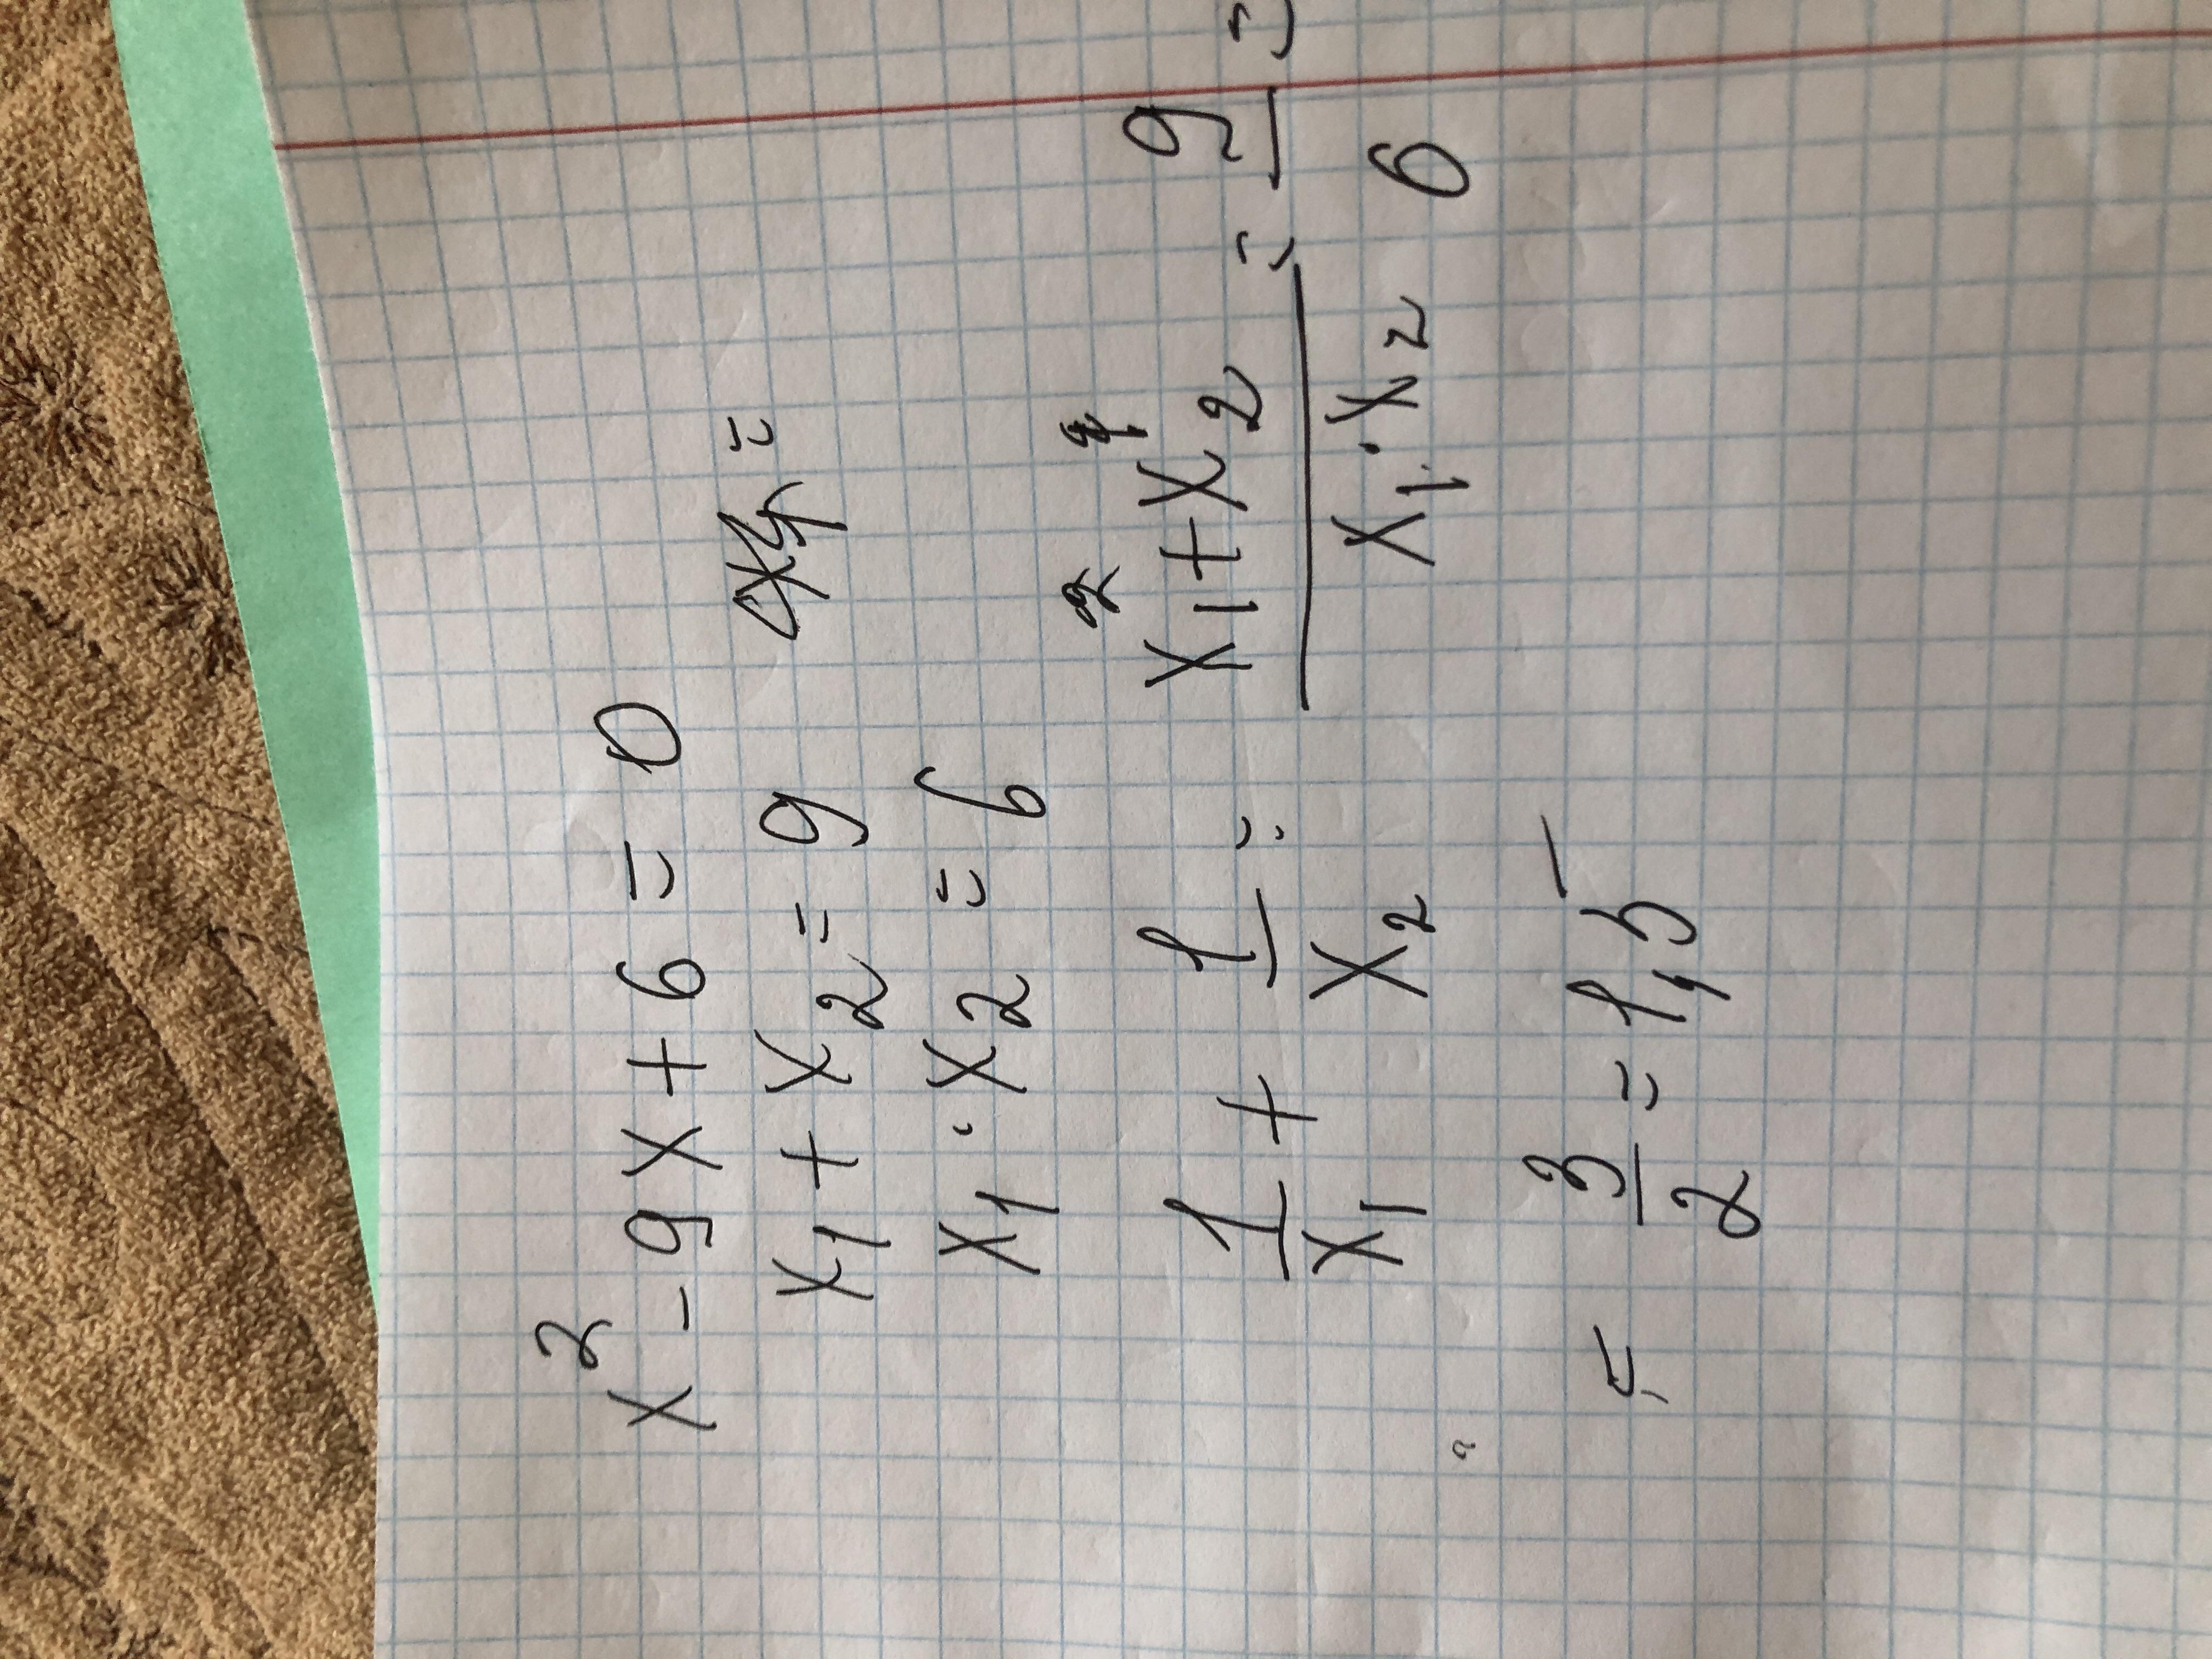 x² - 9x + 6 = 0
x₁ + x₂ = 9
x₁ · x₂ = 6
1/x₁ + 1/x₂ = (x₁ + x₂)/(x₁ · x₂) = 9/6 =
= 3/2 = 1,5